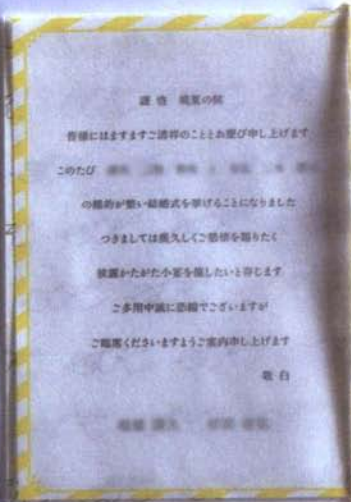 謹啓
皆様にはますますご清祥のこととお慶び申し上げます
このたび
の婚約が整い結婚式を挙げることになりました
つきましては幾久しくご懇情を賜りたく
披露かたがた小宴を催したいと存じます
ご多用中誠に恐縮でございますが
ご臨席くださいますようご案内申し上げます
敬白